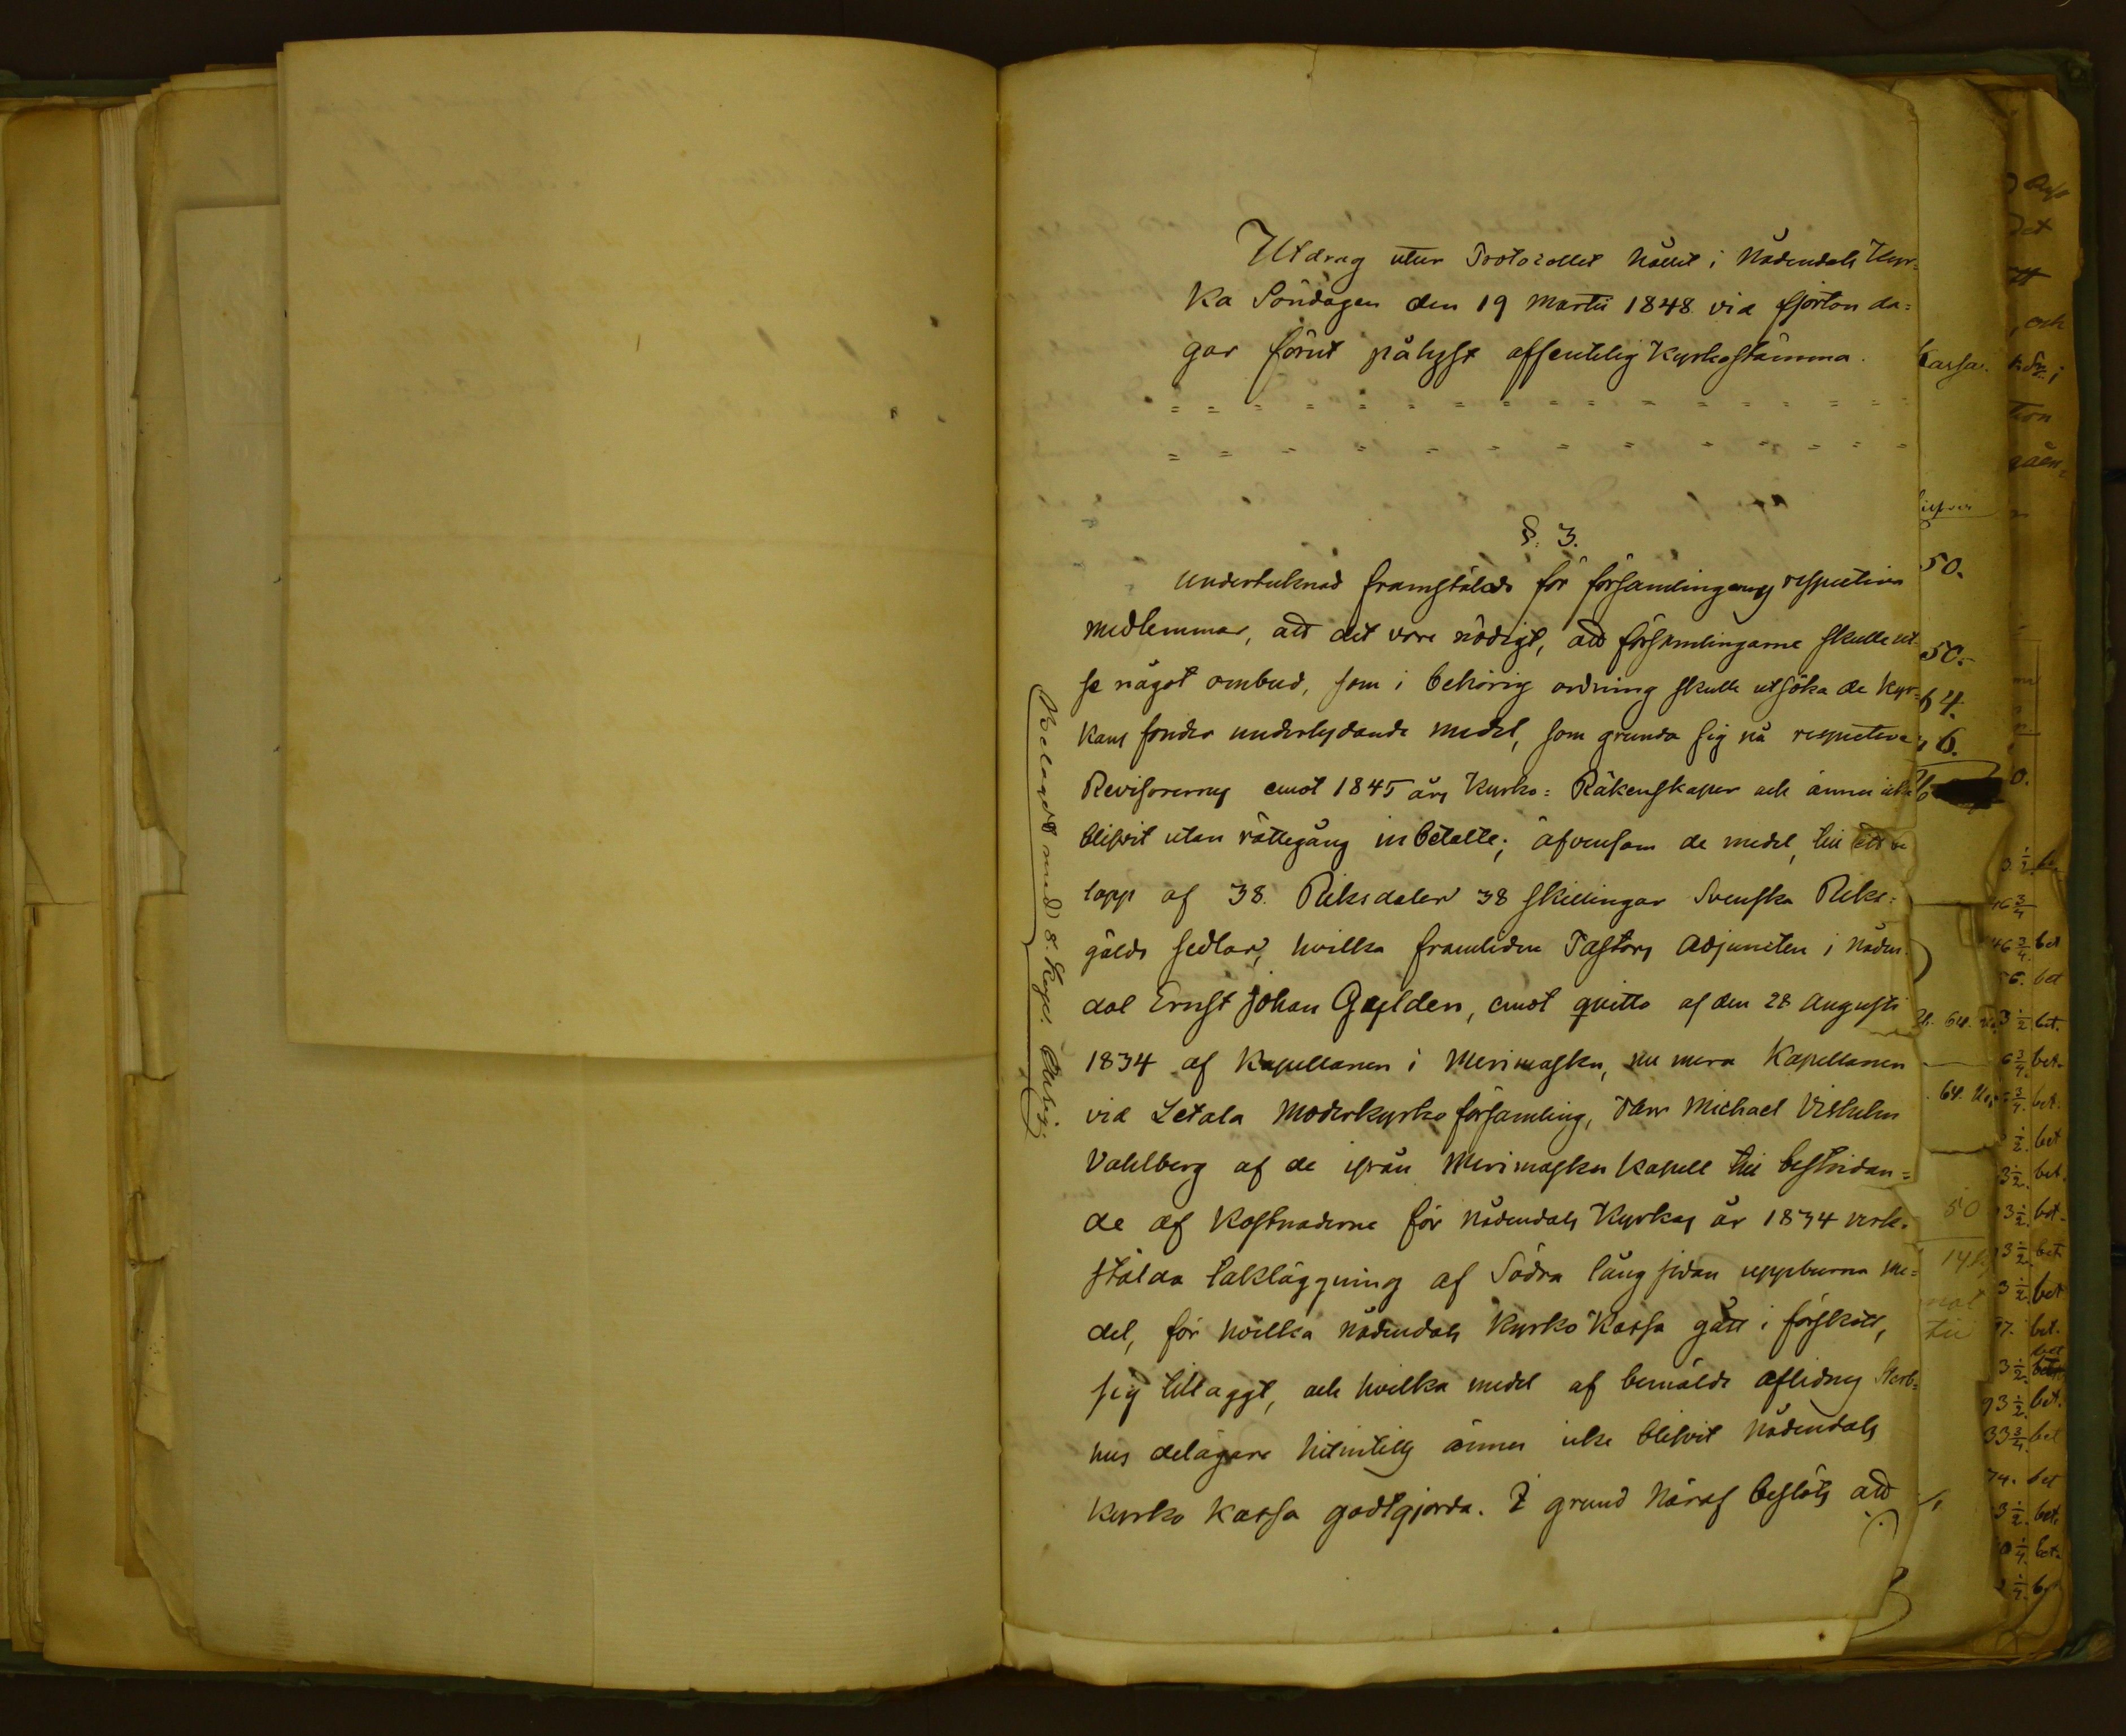 Utdrag utur Protocollet hållit i Nådendals Kyr=
ka Söndagen den 19 Martii 1848 vid fjorton da=
gar förut pålyst offentelig Kyrkostämma.
= = = = = = = = = = = = = = = =
= = = = = = = = = = = = = =
§. 3.
Undertecknad framstälde för församlingens respective
medlemmar, att det vore nödigt, att församlingarne skulle ut-
se något ombud, som i behörig ordning skulle utsöka de Kyr=
kans fonder underlydande medel, som grunda sig på respective
Revisorernes emot 1845 års Kyrko= Räkenskaper och ännu icke
blifvit utan rättegång inbetalte; äfvensom de medel, till ett be
lopp af 38. Riksdaler 38 skillingar Svenska Riks=
gälds sedlar, hvilka framlidne Pastors Adjuncten i Nåden=
dal Ernst Johan Gylden, emot qvitto af den 28 Augusti
1834 af Kapellanen i Merimasku, nu mera Kapellanen
vid Letala Moderkyrko församling, Herr Michael Vilhelm
Vahlberg af de ifrån Merimasku Kapell till bestridan=
de af Kostnaderne för Nådendals Kyrkas år 1834 verk-
stälda takläggning af Södra lång sidan uppburna me=
del, för hvilka Nådendals Kyrko Kassa gått i förskott,
sig tillaggt, och hvilka medel af bemälde aflidnes Sterb=
hus delägare hitintills ännu icke blifvit Nådendals
Kyrko Kassa godtgjorda. I grund häraf beslöts att
Belagdt med 8. Kop. Charta
Kassa.
50.
50.
64.
6.
64.
64.
50
till
och
tion
0.
3 1/2
16 3/4
46 3/4 bet
56. bet
3 1/2 bet.
6 3/4 bet.
3/4 bet.
1/2 bet
3 1/2 bet.
3 1/2 bet.
3 1/2 bet
3 1/2 bet
97. bet.
3 1/2 bet
93 1/2 bet.
33 3/4 bet
74. bet
3 1/2 bet.
1/4 bet.